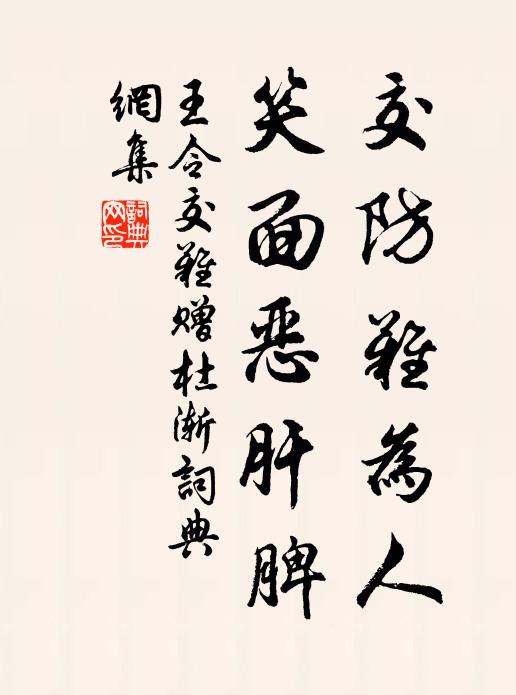 交防難為人
笑面惡肝脾
王令交難贈杜漸詞典
網集
詞典
网印